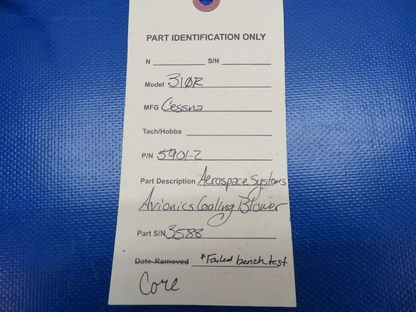 PART IDENTIFICATION ONLY
N ________ S/N ________
Model 310R
MFG Cessna
Tach/Hobbs ________
P/N 5901-2
Part Description Aerospace Systems
Avionics Cooling Blower
Part S/N 3588
Date Removed *Failed bench test
Core